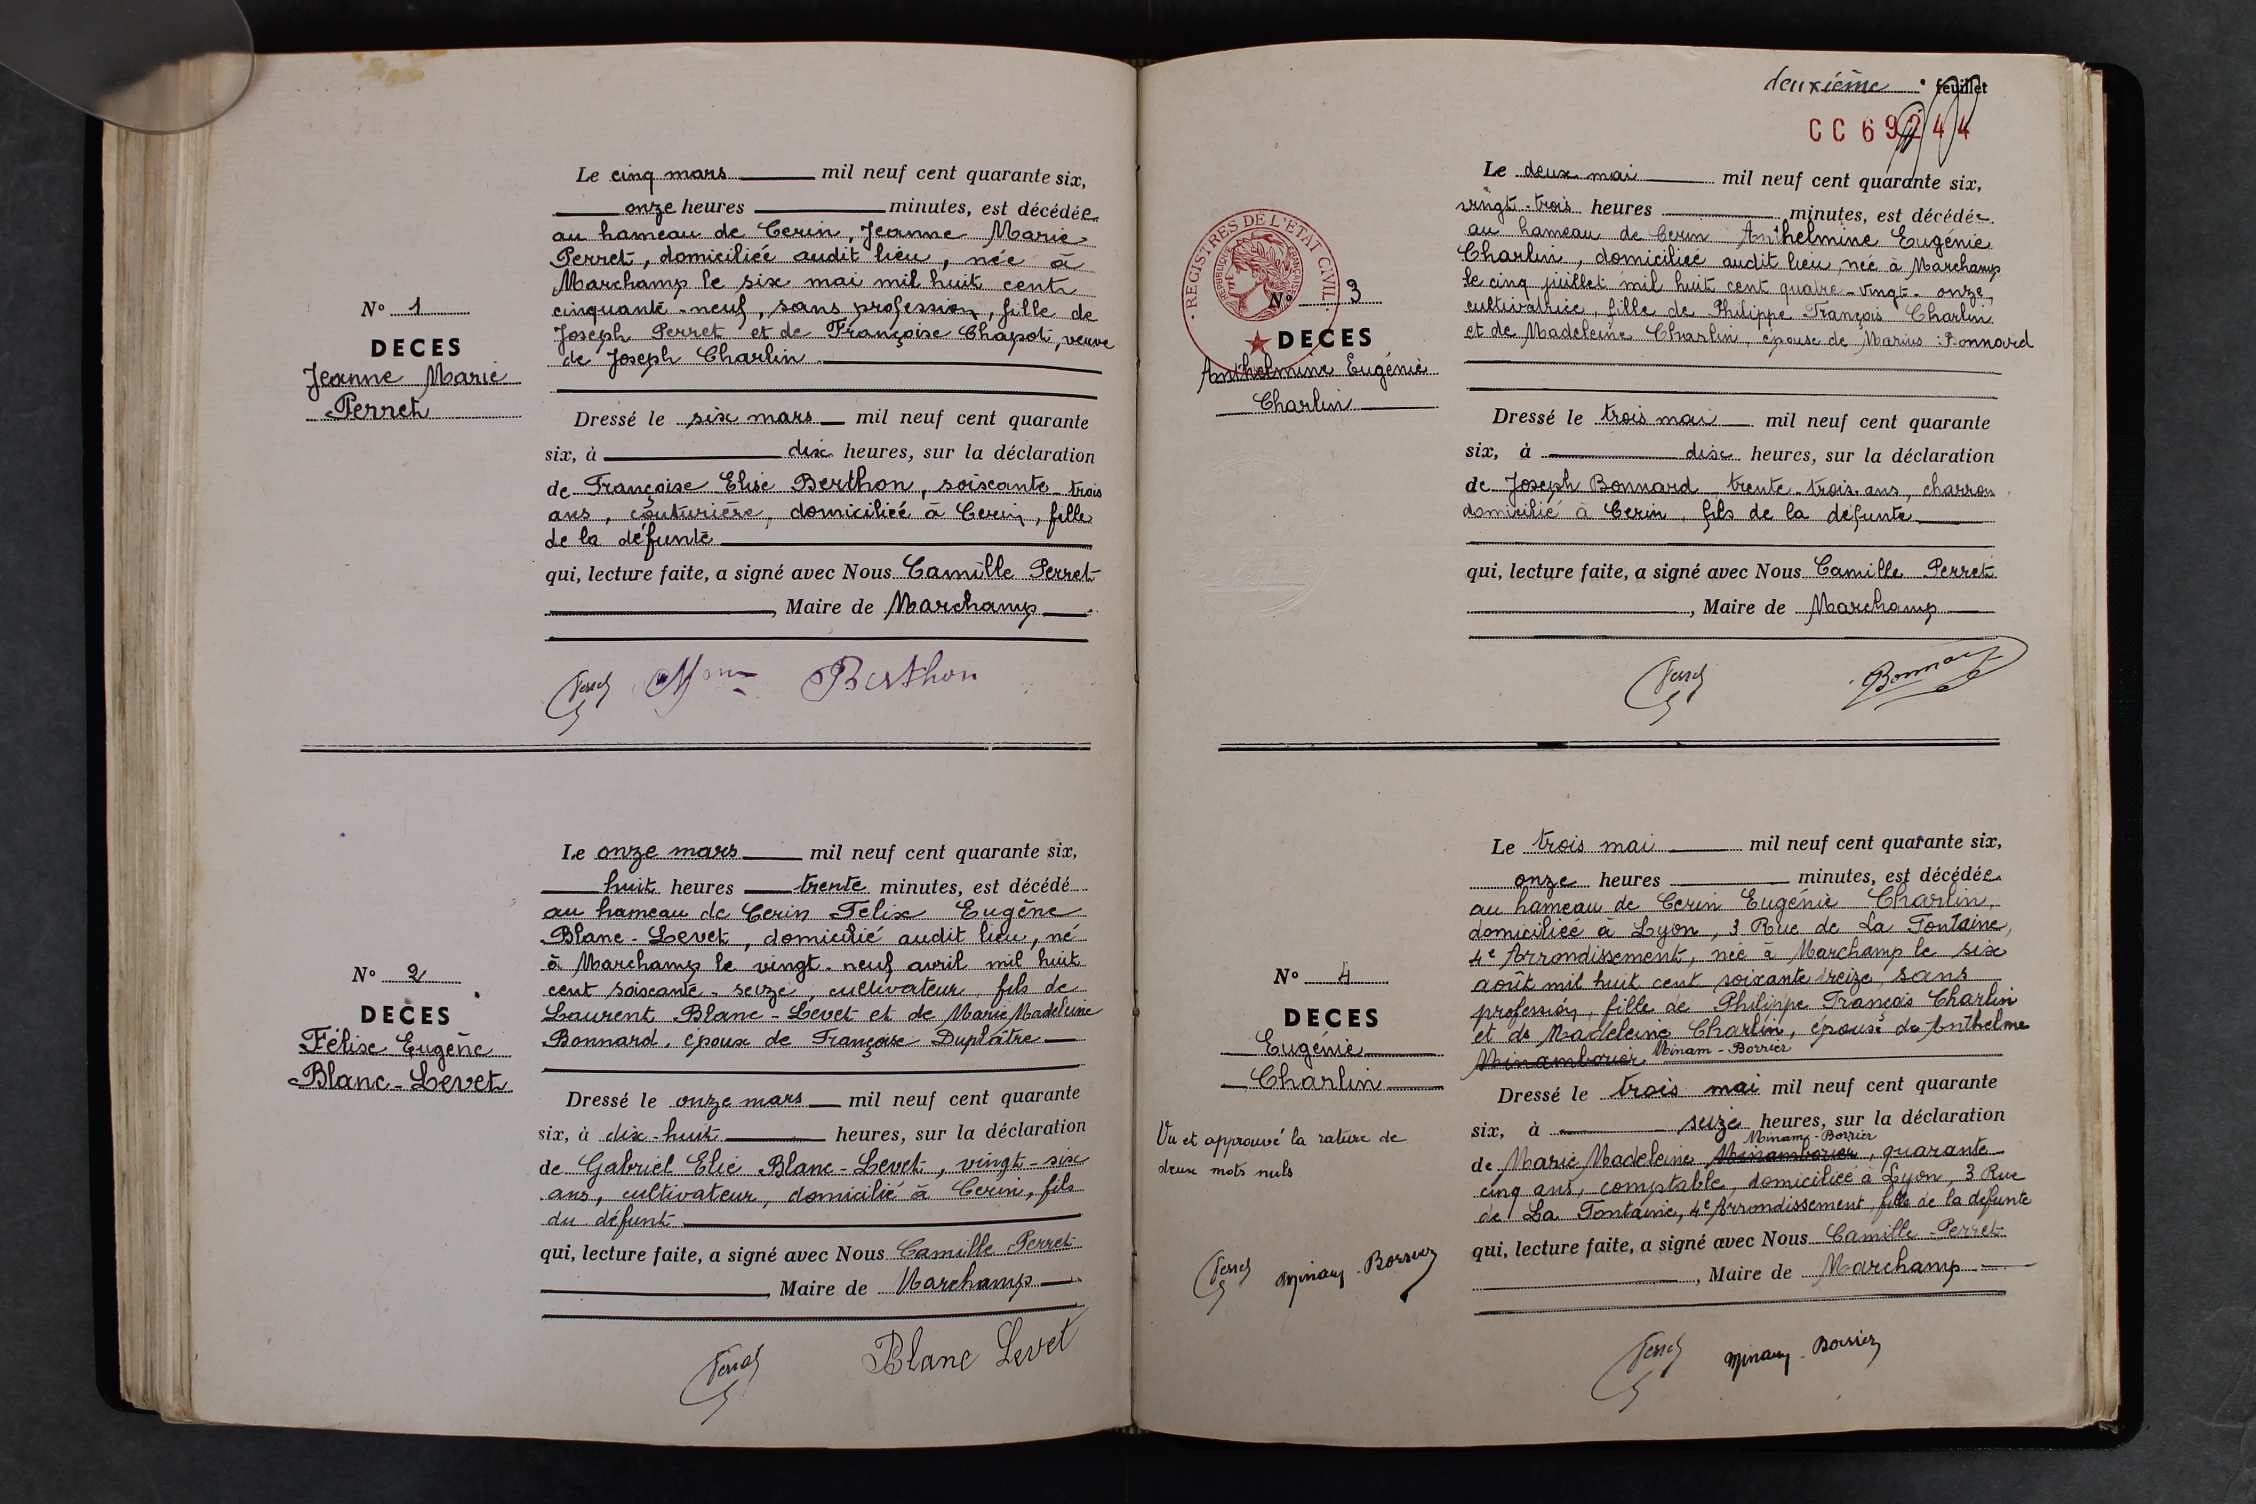 Le cinq mars mil neuf cent quarante six,
onze heures minutes, est décédée
au hameau de Cerin, Jeanne Marie
Perret, domiciliée audit lieu, née à
Marchamp le six mai mil huit cent
cinquante-neuf, sans profession, fille de
Joseph Perret et de Françoise Chapot, veuve
de Joseph Charlin
N° 1
DECES
Jeanne Marie
Perret
Dressé le six mars mil neuf cent quarante
six, à dix heures, sur la déclaration
de Françoise Elise Berthon, soixante-trois
ans, couturière, domiciliée à Cerin, fille
de la défunte
qui, lecture faite, a signé avec Nous Camille Perret
, Maire de Marchamp
Perret Mme Berthon
Le onze mars mil neuf cent quarante six,
huit heures trente minutes, est décédé
au hameau de Cerin Félix Eugène
Blanc-Levet, domicilié audit lieu, né
à Marchamp le vingt-neuf avril mil huit
cent soixante-seize, cultivateur, fils de
Laurent Blanc-Levet et de Marie Madeleine
Bonnard, époux de Françoise Duplâtre
N° 2
DECES
Félix Eugène
Blanc-Levet
Dressé le onze mars mil neuf cent quarante
six, à dix-huit heures, sur la déclaration
de Gabriel Elie Blanc-Levet, vingt-six
ans, cultivateur, domicilié à Cerin, fils
du défunt
qui, lecture faite, a signé avec Nous Camille Perret
, Maire de Marchamp
Perret Blanc Levet
deuxième feuillet
CC 69244
REGISTRES DE L'ETAT CIVIL
REPUBLIQUE FRANÇAISE
Le deux mai mil neuf cent quarante six,
vingt-trois heures minutes, est décédée
au hameau de Cerin Anthelmine Eugénie
Charlin, domiciliée audit lieu, née à Marchamp
le cinq juillet mil huit cent quatre-vingt-onze,
cultivatrice, fille de Philippe François Charlin
et de Madeleine Charlin, épouse de Marius Bonnard
N° 3
DECES
Anthelmine Eugénie
Charlin
Dressé le trois mai mil neuf cent quarante
six, à dix heures, sur la déclaration
de Joseph Bonnard trente-trois ans, charron
domicilié à Cerin, fils de la défunte
qui, lecture faite, a signé avec Nous Camille Perret
, Maire de Marchamp
Perret Bonnard
Le trois mai mil neuf cent quarante six,
onze heures minutes, est décédée
au hameau de Cerin Eugénie Charlin,
domiciliée à Lyon, 3 Rue de La Fontaine,
4e Arrondissement, née à Marchamp le six
août mil huit cent soixante treize, sans
profession, fille de Philippe François Charlin
et de Madeleine Charlin, épouse de Anthelme
Minamborier Minam-Borrier
N° 4
DECES
Eugénie
Charlin
Dressé le trois mai mil neuf cent quarante
six, à seize heures, sur la déclaration
Minam-Borrier
de Marie Madeleine Minamborier, quarante
cinq ans, comptable, domiciliée à Lyon, 3 Rue
de La Fontaine, 4e Arrondissement, fille de la défunte
qui, lecture faite, a signé avec Nous Camille Perret
, Maire de Marchamp
Vu et approuvé la rature de
deux mots nuls
Perret Minam-Borrier
Perret Minam-Borrier